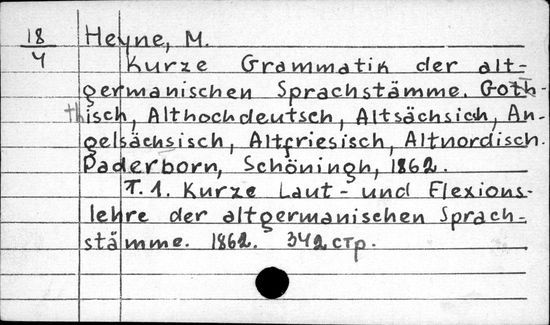 18/4 Heyne, M.
Kurze Grammatik der alt-
germanischen Sprachstämme. Goth-
isch, Althochdeutsch, Altsächsich, An-
gelsächsisch, Altfriesisch, Altnordisch.
Paderborn, Schöningh, 1862.
T. 1. Kurze Laut- und Flexions-
lehre der altgermanischen Sprach-
stämme. 1862. 342 стр.